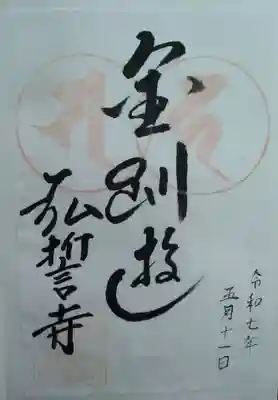 令和七年
五月十一日
金剛遊
弘誓寺